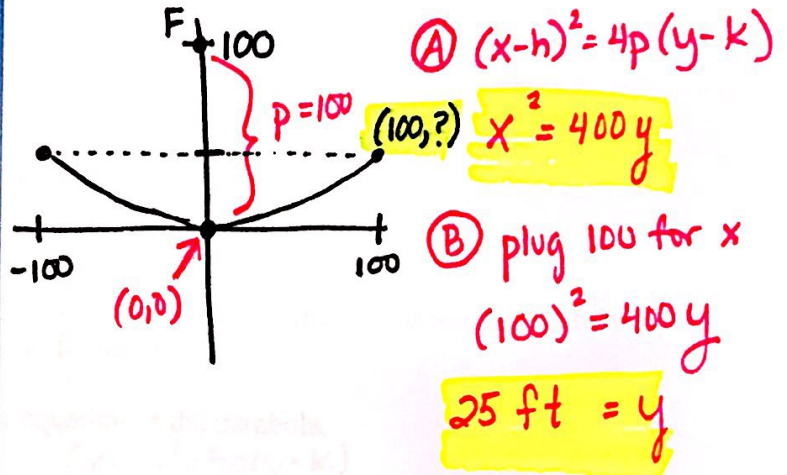 F 100
p=100
(100,?)
-100
100
(0,0)
Ⓐ (x-h)²=4p(y-k)
x²=400y
Ⓑ plug 100 for x
(100)²=400y
25 ft = y